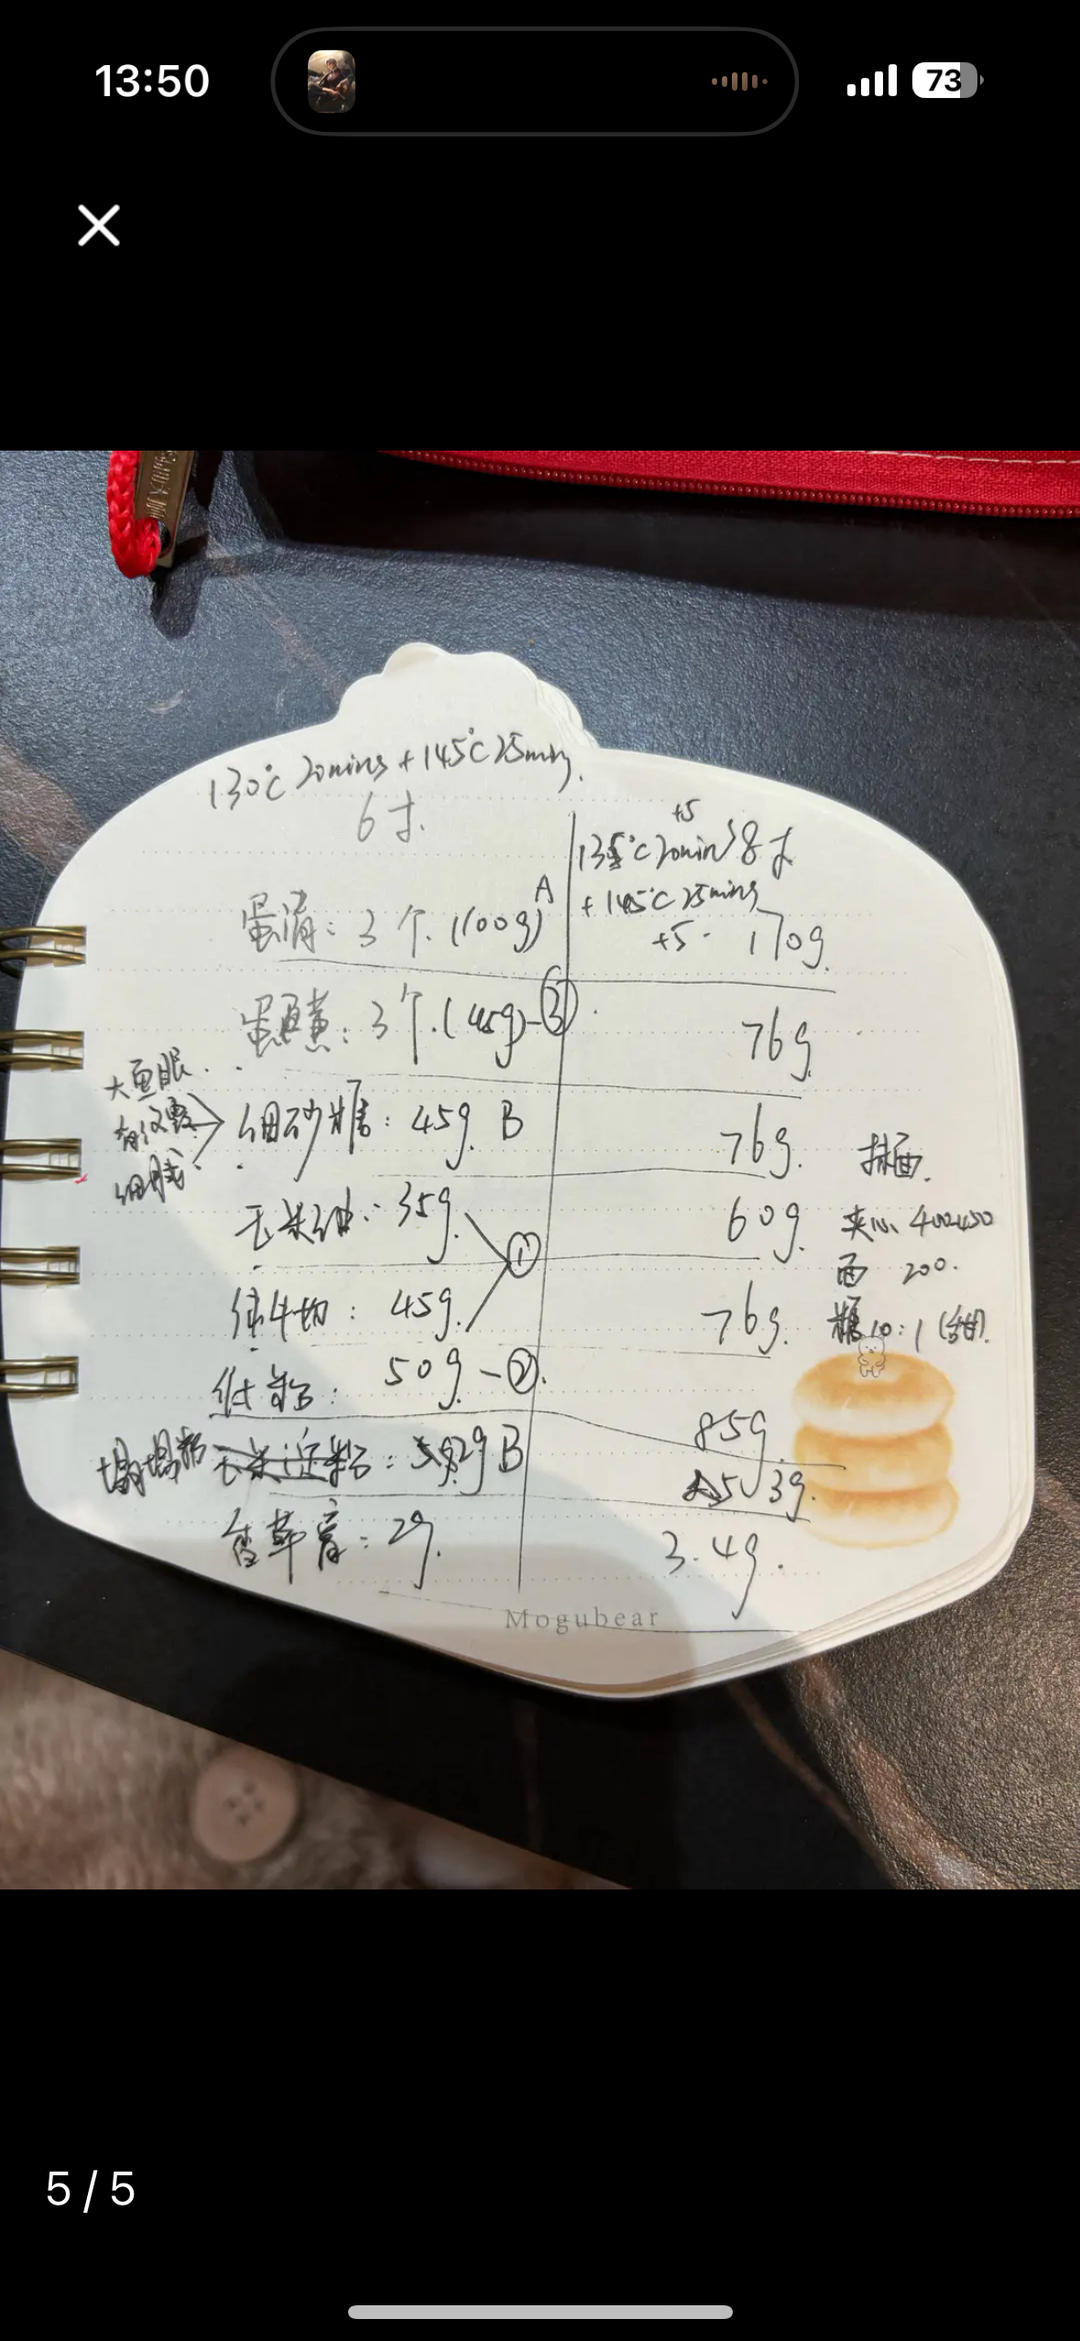 13:50
73
130℃ 20mins + 145℃ 25mins.
6寸.
蛋清: 3个. (100g) A
蛋黄: 3个. (45g) - ③
大鱼眼
有纹路
细腻
细砂糖: 45g. B
玉米油: 35g.
①
纯牛奶: 45g.
低粉: 50g - ②.
塌塌粉
玉米淀粉: 2g B
香草膏: 2g.
+5
135℃ 20min 8寸
+ 145℃ 25mins
+5.
170g.
76g.
76g.
60g.
76g.
85g.
3g.
3.4g.
抹面.
夹心 400-450
面 200.
糖 10:1 (甜).
Mogubear
5 / 5